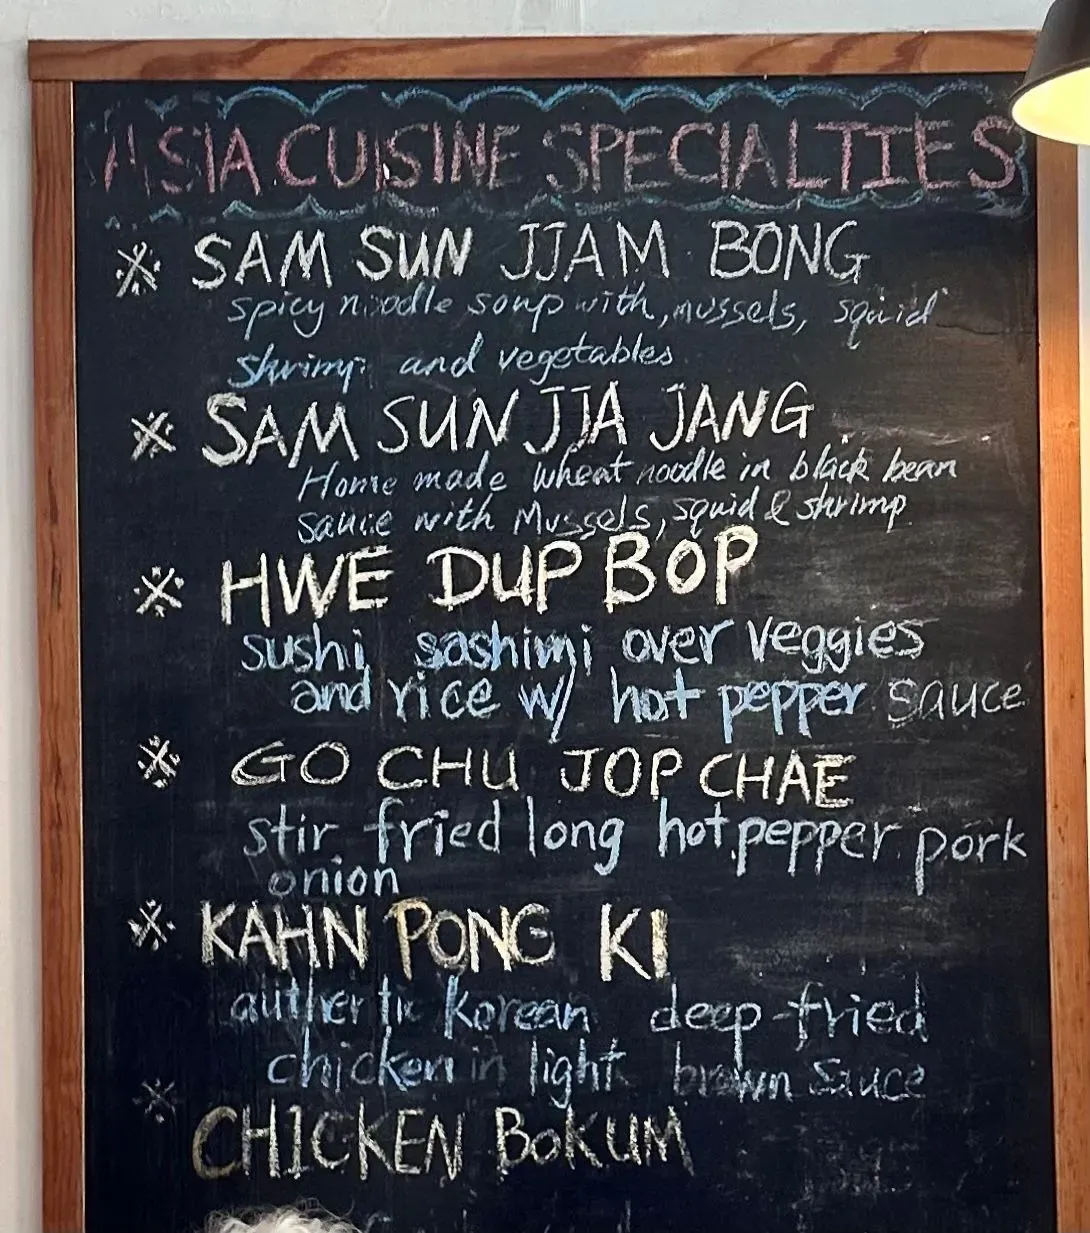 ASIA CUISINE SPECIALTIES
※ SAM SUN JJAM BONG
spicy noodle soup with, mussels, squid
shrimp and vegetables
※ SAM SUN JJA JANG
Home made wheat noodle in black bean
sauce with Mussels, squid & shrimp
※ HWE DUP BOP
sushi, sashimi over veggies
and rice w/ hot pepper sauce
※ GO CHU JOP CHAE
stir fried long hot pepper pork
onion
※ KAHN PONG KI
authentic Korean deep-fried
chicken in light brown sauce
※ CHICKEN BOKUM